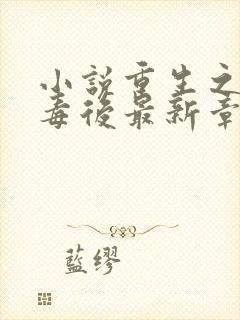 小說重生之
毒後最新章
藍繆